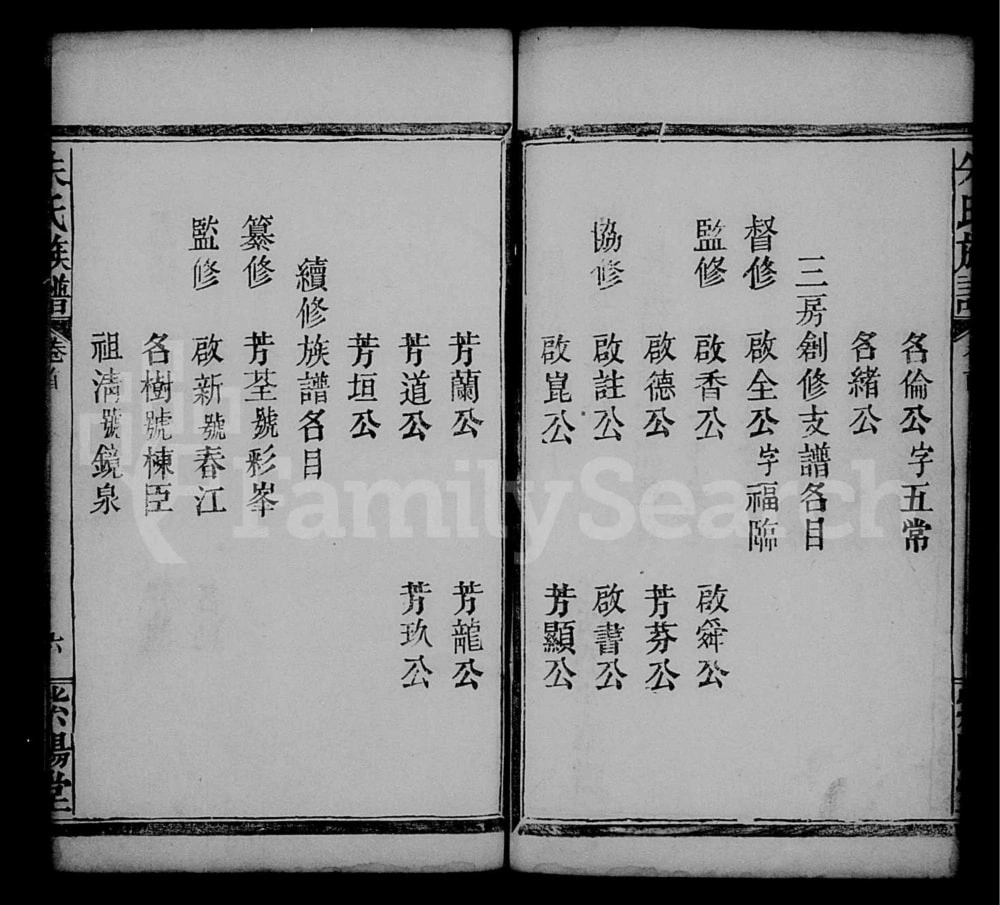 名倫公字五常
名緒公
三房創修支譜名目
督修 啟全公字福臨
監修 啟香公 啟舜公
啟德公 芳芬公
協修 啟註公 啟書公
啟崑公 芳顯公
芳蘭公 芳龍公
芳道公 芳玖公
芳垣公
續修族譜名目
纂修 芳荃號彩峯
監修 啟新號春江
名樹號棟臣
祖清號鏡泉
朱氏族譜 卷首 六 紫陽堂
FamilySearch